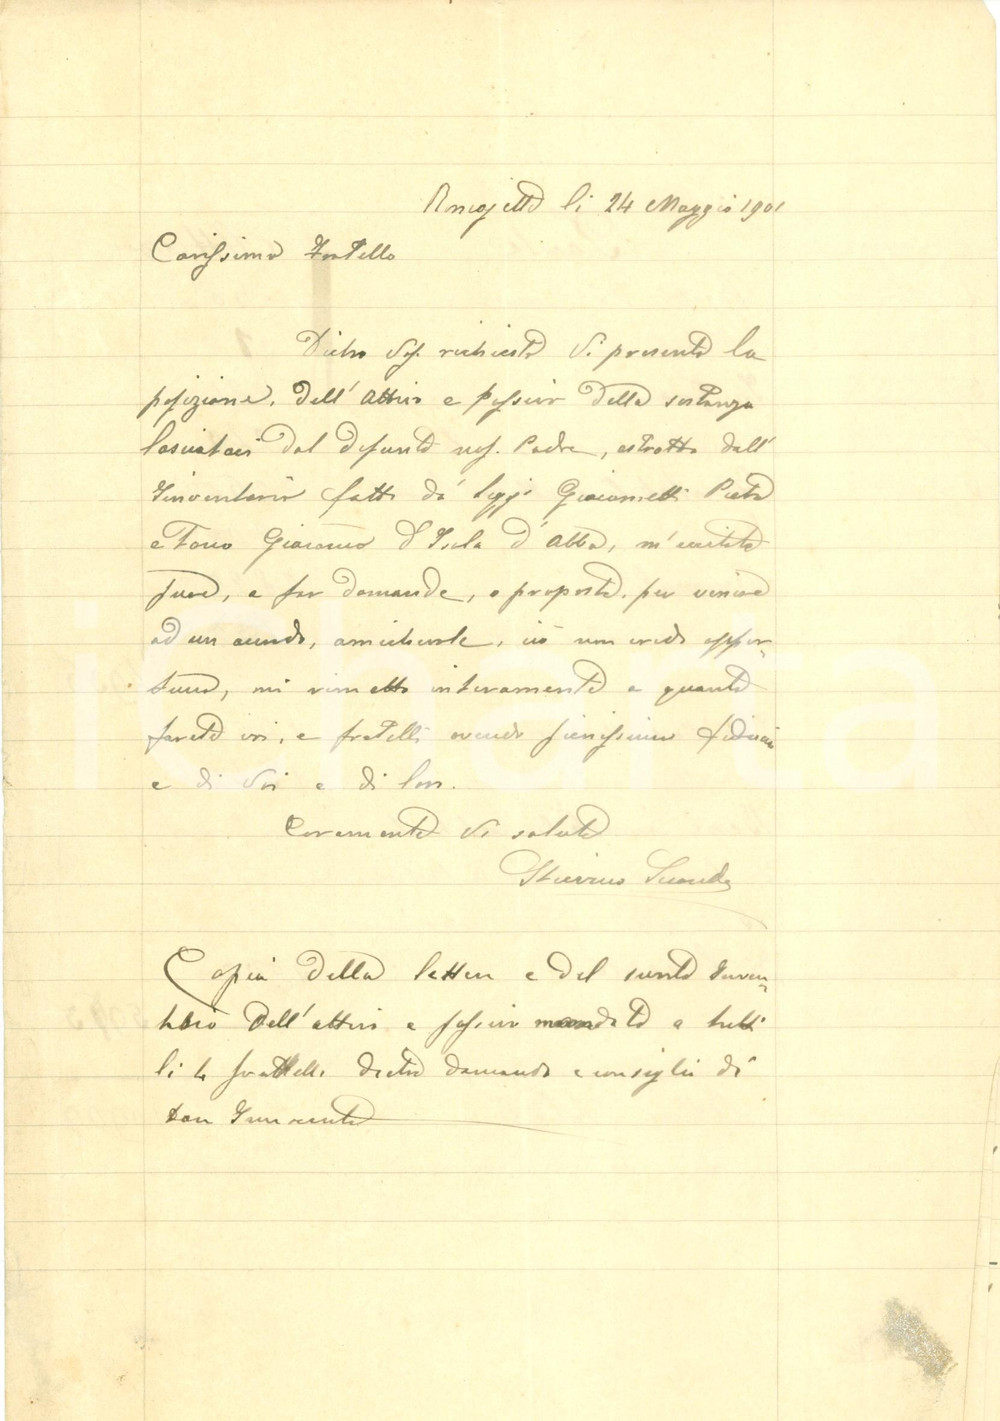 li 24 Maggio 1901
Carissimo Fratello
Dietro Vos. richiesta Vi presento la
posizione, dell' Attivo e Passivo della sostanza
lasciataci dal defunto nos. Padre, estratto dall'
Inventario fatto da' Sigg.i Giacometti Pietro
e Toso Giacomo d'Isola d'Abbà, m'
fare, a far domande, o proposte, per venire
ad un accordo, amichevole, ciò non credo oppor-
tuno, mi rimetto interamente a quanto
farete voi, e fratelli avendo pienissima fiducia
e di Voi e di loro.
Caramente Vi saluto
Secondo
Copia della lettera e del sunto Inven-
tario dell'attivo e passivo mandato a tutti
li 4 frattelli dietro domanda e consiglio di
don Innocente